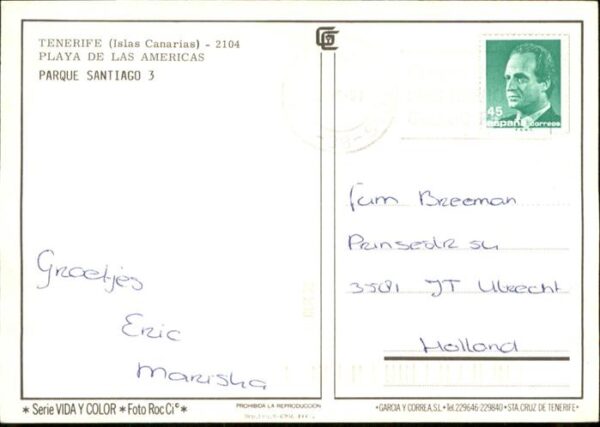 TENERIFE (Islas Canarias) - 2104
PLAYA DE LAS AMERICAS
PARQUE SANTIAGO 3
45
españa correos
Groetjes
Eric
Mariska
Fam Breeman
3581 JT Utrecht
Holland
* Serie VIDA Y COLOR * Foto Roc Ci® *
PROHIBIDA LA REPRODUCCION
•GARCIA Y CORREA,S.L•Tel.229646-229840•STA.CRUZ DE TENERIFE•